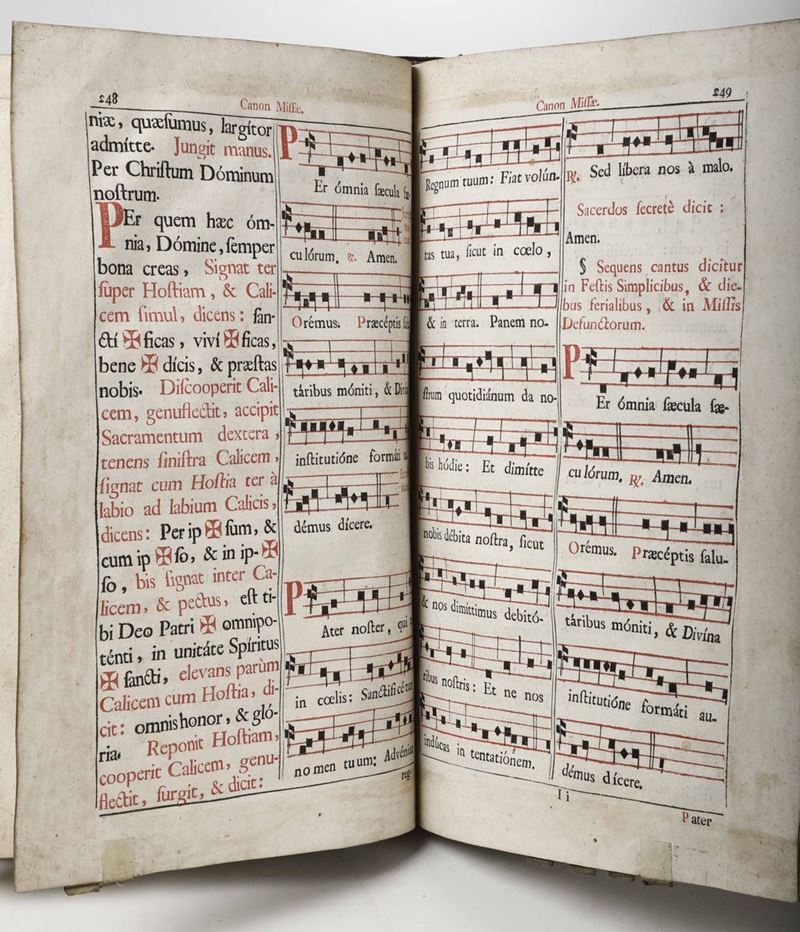 248
Canon Missæ.
niæ, quæsumus, largítor
admítte. Jungit manus.
Per Christum Dóminum
nostrum.
PEr quem hæc óm-
nia, Dómine, semper
bona creas, Signat ter
super Hostiam, & Cali-
cem simul, dicens: san-
ctí ✠ ficas, viví ✠ ficas,
bene ✠ dícis, & præstas
nobis. Discooperit Cali-
cem, genuflectit, accipit
Sacramentum dextera,
tenens sinistra Calicem,
signat cum Hostia ter à
labio ad labium Calicis,
dicens: Per ip ✠ sum, &
cum ip ✠ so, & in ip- ✠
so, bis signat inter Ca-
licem, & pectus, est ti-
bi Deo Patri ✠ omnipo-
ténti, in unitáte Spíritus
✠ sancti, elevans parùm
Calicem cum Hostia, di-
cit: omnis honor, & gló-
ria. Reponit Hostiam,
cooperit Calicem, genu-
flectit, surgit, & dicit:
PEr ómnia sæcula sæ-
culórum. ℟. Amen.
Orémus. Præcéptis
táribus móniti, &
institutióne formáti
démus dícere.
PAter noster, qui
in cœlis: Sanctificétur
nomen tuum: Advéniat
reg-
Canon Missæ.
249
Regnum tuum: Fiat volún-
tas tua, sicut in cœlo,
& in terra. Panem no-
strum quotidiánum da no-
bis hódie: Et dimítte
nobis débita nostra, sicut
& nos dimíttimus debitó-
ribus nostris: Et ne nos
indúcas in tentatiónem.
℟. Sed líbera nos à malo.
Sacerdos secretè dicit:
Amen.
§ Sequens cantus dicitur
in Festis Simplicibus, & die-
bus ferialibus, & in Missis
Defunctorum.
PEr ómnia sæcula sæ-
culórum. ℟. Amen.
Orémus. Præcéptis salu-
táribus móniti, & Divína
institutióne formáti au-
démus dícere.
I i
Pater